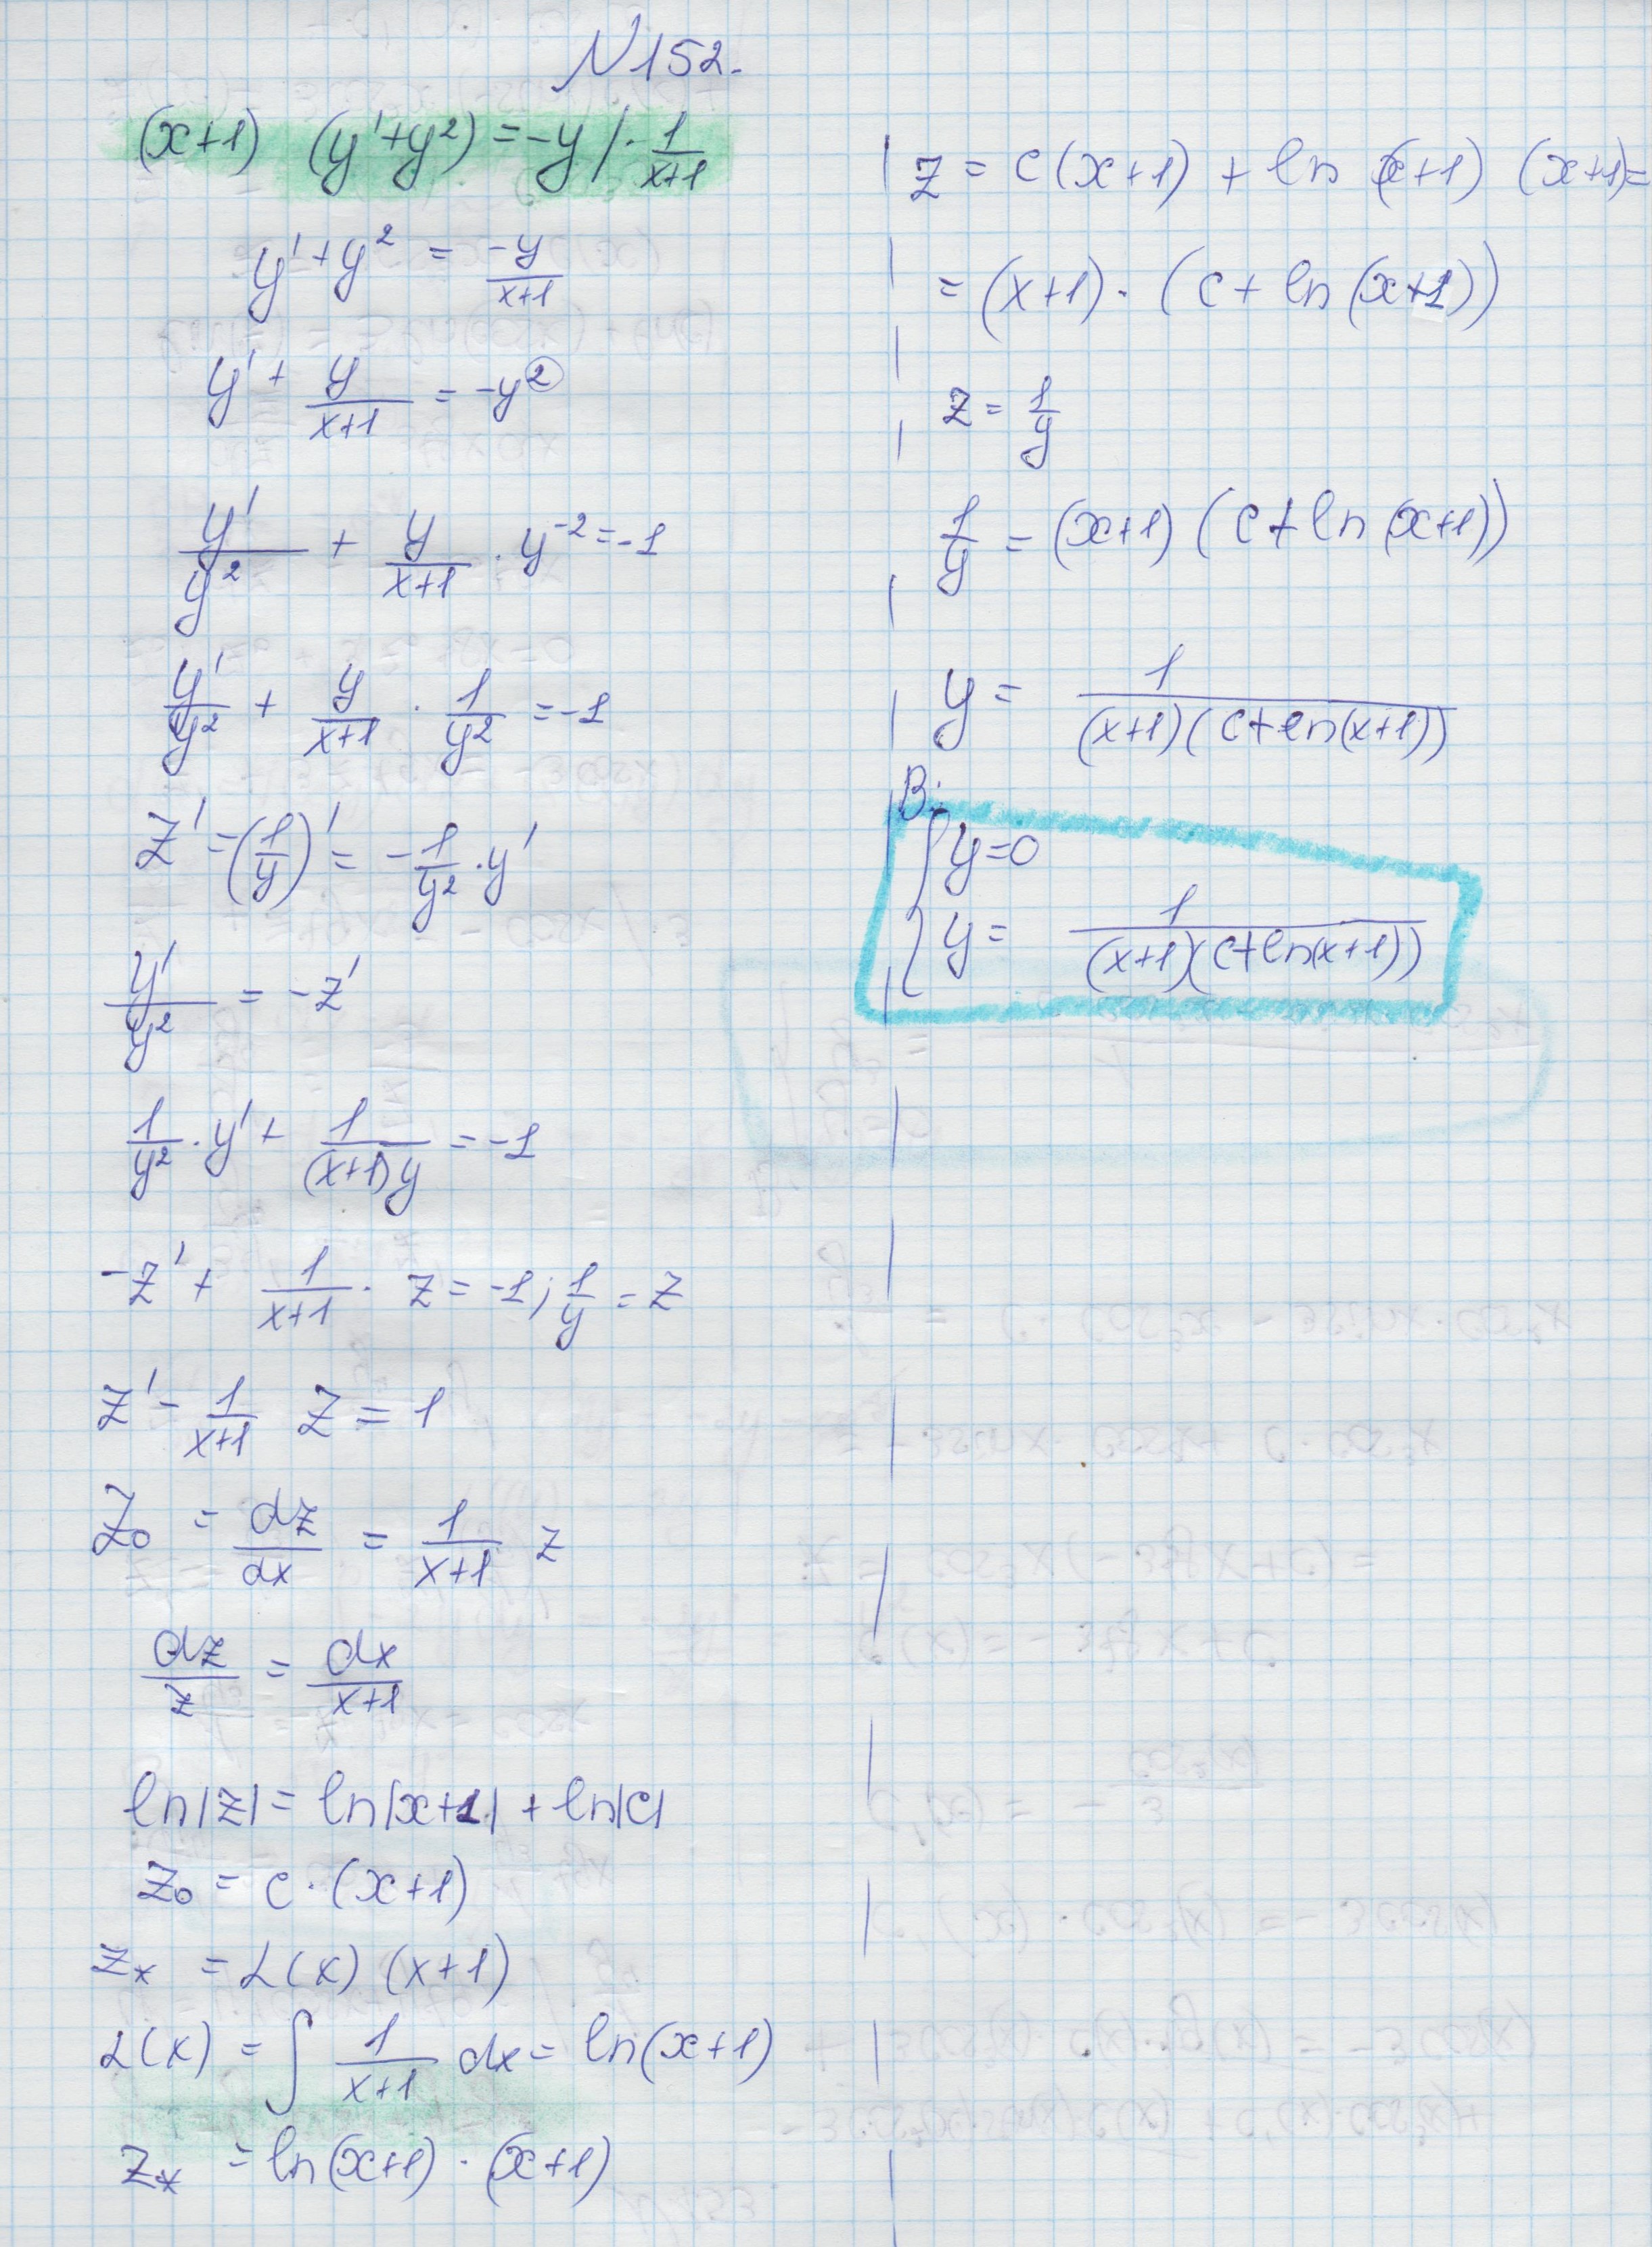 N152.
(x+1) (y'+y²) = -y / · 1/(x+1)
y'+y² = -y/(x+1)
y' + y/(x+1) = -y²
y'/y² + y/(x+1) · y⁻² = -1
y'/y² + y/(x+1) · 1/y² = -1
z' = (1/y)' = -1/y² · y'
y'/y² = -z'
1/y² · y' + 1/((x+1)y) = -1
-z' + 1/(x+1) · z = -1; 1/y = z
z' - 1/(x+1) z = 1
z₀ = dz/dx = 1/(x+1) z
dz/z = dx/(x+1)
ln|z| = ln|x+1| + ln|c|
z₀ = c · (x+1)
z* = α(x) (x+1)
α(x) = ∫ 1/(x+1) dx = ln(x+1)
z* = ln(x+1) · (x+1)
z = c(x+1) + ln(x+1) (x+1) =
= (x+1) · (c + ln(x+1))
z = 1/y
1/y = (x+1) (c + ln(x+1))
y = 1/((x+1)(c+ln(x+1)))
В:
{ y=0
y = 1/((x+1)(c+ln(x+1)))